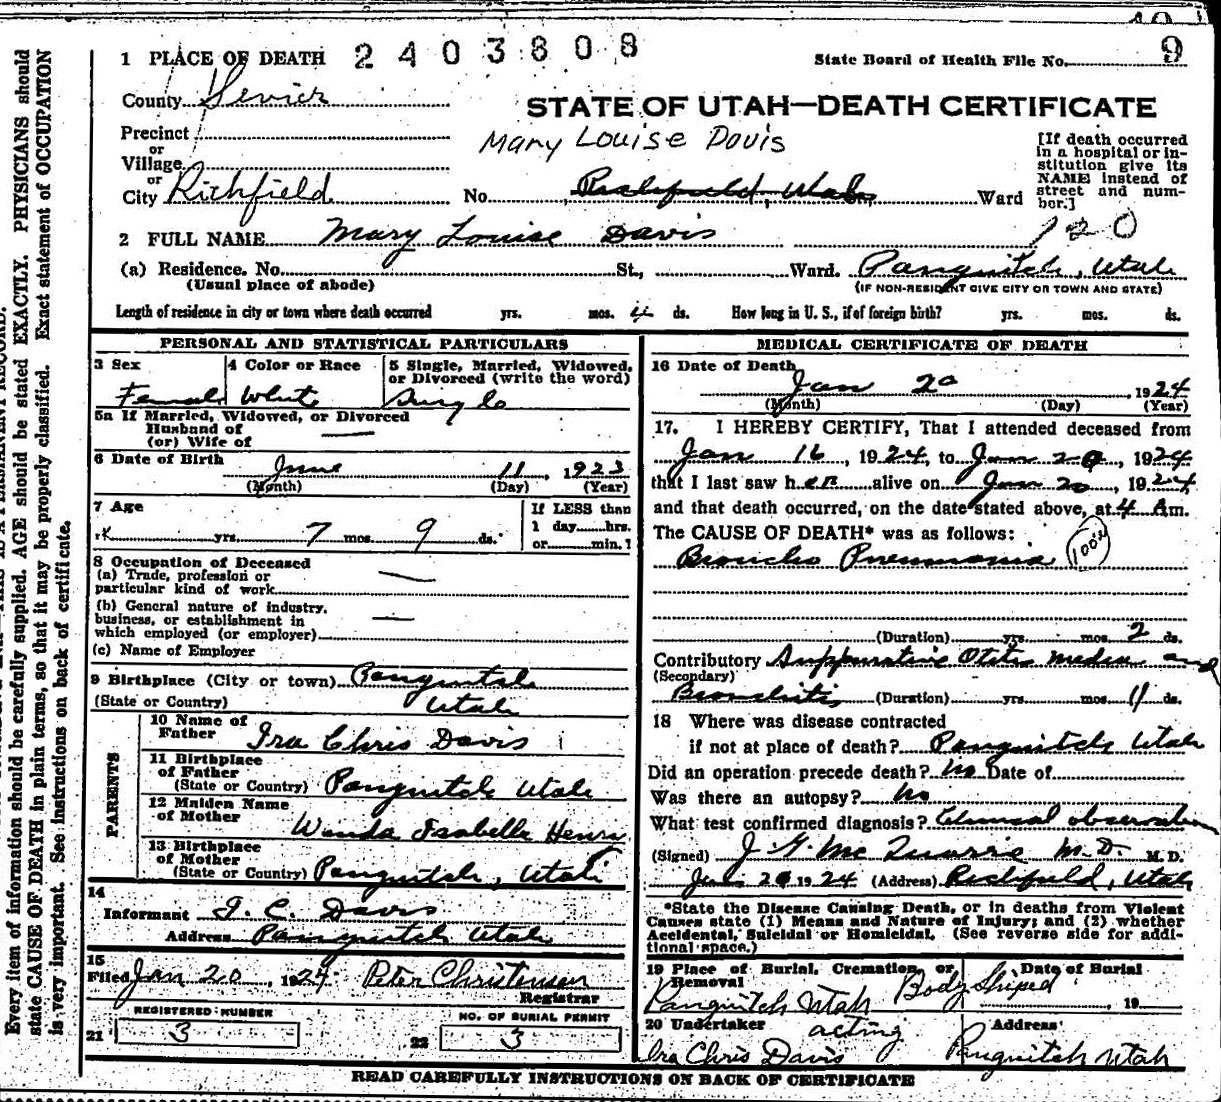 1 PLACE OF DEATH 2403808
State Board of Health File No. 9
County Sevier
STATE OF UTAH—DEATH CERTIFICATE
Precinct
or
Village
or
City Richfield
Mary Louise Davis
No. Richfield, Utah, Ward
[If death occurred
in a hospital or in-
stitution give its
NAME instead of
street and num-
ber.]
120
2 FULL NAME Mary Louise Davis
(a) Residence. No. St., Ward. Panguitch, Utah
(Usual place of abode)
(IF NON-RESIDENT GIVE CITY OR TOWN AND STATE)
Length of residence in city or town where death occurred yrs. mos. 4 ds. How long in U. S., if of foreign birth? yrs. mos. ds.
PERSONAL AND STATISTICAL PARTICULARS
3 Sex
Female
4 Color or Race
White
5 Single, Married, Widowed,
or Divorced (write the word)
Single
5a If Married, Widowed, or Divorced
Husband of
(or) Wife of —
6 Date of Birth June 11, 1923
(Month) (Day) (Year)
7 Age
yrs. 7 mos. 9 ds.
If LESS than
1 day hrs.
or min.?
8 Occupation of Deceased
(a) Trade, profession or
particular kind of work —
(b) General nature of industry,
business, or establishment in
which employed (or employer) —
(c) Name of Employer
9 Birthplace (City or town) Panguitch
(State or Country) Utah
PARENTS
10 Name of
Father Ira Chris Davis
11 Birthplace
of Father
(State or Country) Panguitch Utah
12 Maiden Name
of Mother Wanda Isabella Henry
13 Birthplace
of Mother
(State or Country) Panguitch, Utah
14
Informant I. C. Davis
Address Panguitch Utah
15
Filed Jan 20, 1924 Peter Christensen
Registrar
REGISTERED NUMBER
21 3
NO. OF BURIAL PERMIT
22 3
MEDICAL CERTIFICATE OF DEATH
16 Date of Death
Jan 20, 1924
(Month) (Day) (Year)
17. I HEREBY CERTIFY, That I attended deceased from
Jan 16, 1924, to Jan 20, 1924
that I last saw her alive on Jan 20, 1924
and that death occurred, on the date stated above, at 4 Am.
The CAUSE OF DEATH* was as follows:
Broncho Pneumonia
(Duration) yrs. mos. 2 ds.
Contributory Suppurative Otitis media and
(Secondary)
Bronchitis (Duration) yrs. mos. 11 ds.
18 Where was disease contracted
if not at place of death? Panguitch Utah
Did an operation precede death? No Date of
Was there an autopsy? No
What test confirmed diagnosis? Clinical observation
(Signed) J. G. McQuarrie M.D. M.D.
Jan 20 1924 (Address) Richfield, Utah
*State the Disease Causing Death, or in deaths from Violent
Causes state (1) Means and Nature of Injury; and (2) whether
Accidental, Suicidal or Homicidal. (See reverse side for addi-
tional space.)
19 Place of Burial, Cremation, or
Removal
Panguitch Utah Body Shiped
Date of Burial
19
20 Undertaker acting
Ira Chris Davis
Address
Panguitch Utah
READ CAREFULLY INSTRUCTIONS ON BACK OF CERTIFICATE
Every item of information should be carefully supplied. AGE should be stated EXACTLY. PHYSICIANS should
state CAUSE OF DEATH in plain terms, so that it may be properly classified. Exact statement of OCCUPATION
is very important. See instructions on back of certificate.